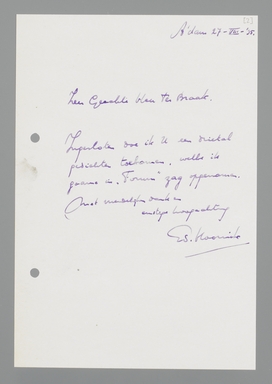 A'dam 27-VIII-'35.
Zeer Geachte Heer Ter Braak,
Ingesloten doe ik U een drietal
gedichten toekomen, welke ik
gaarne in "Forum" zag opgenomen.
Met vriendelijke dank en
hoogachting
Ed. Hoornik